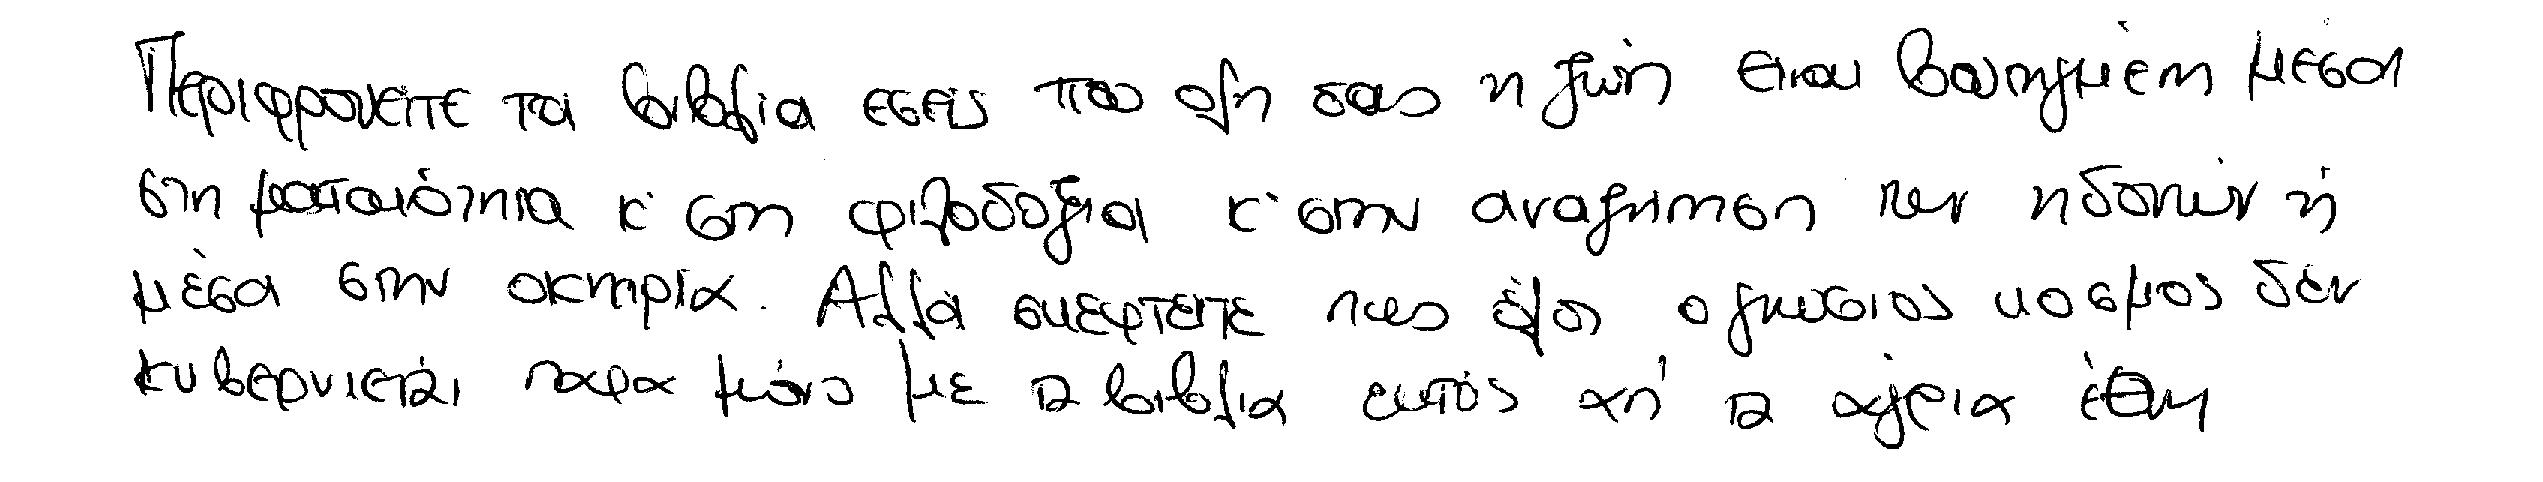 Περιφρονειτε τα βιβλια εσεις που ολη σας η ζωή ειναι βουτηγμένη μεσα
στη ματαιότητα κ' στη φιλοδοξια κ' στην αναζητηση των ηδονών ή
μέσα στην οκνηρία. Αλλά σκεφτειτε πως όλος ο γνωσιος κοσμος δεν
κυβερνιεται παρα μόνο με τα βιβλια εκτός απ' τα αγρια έθνη